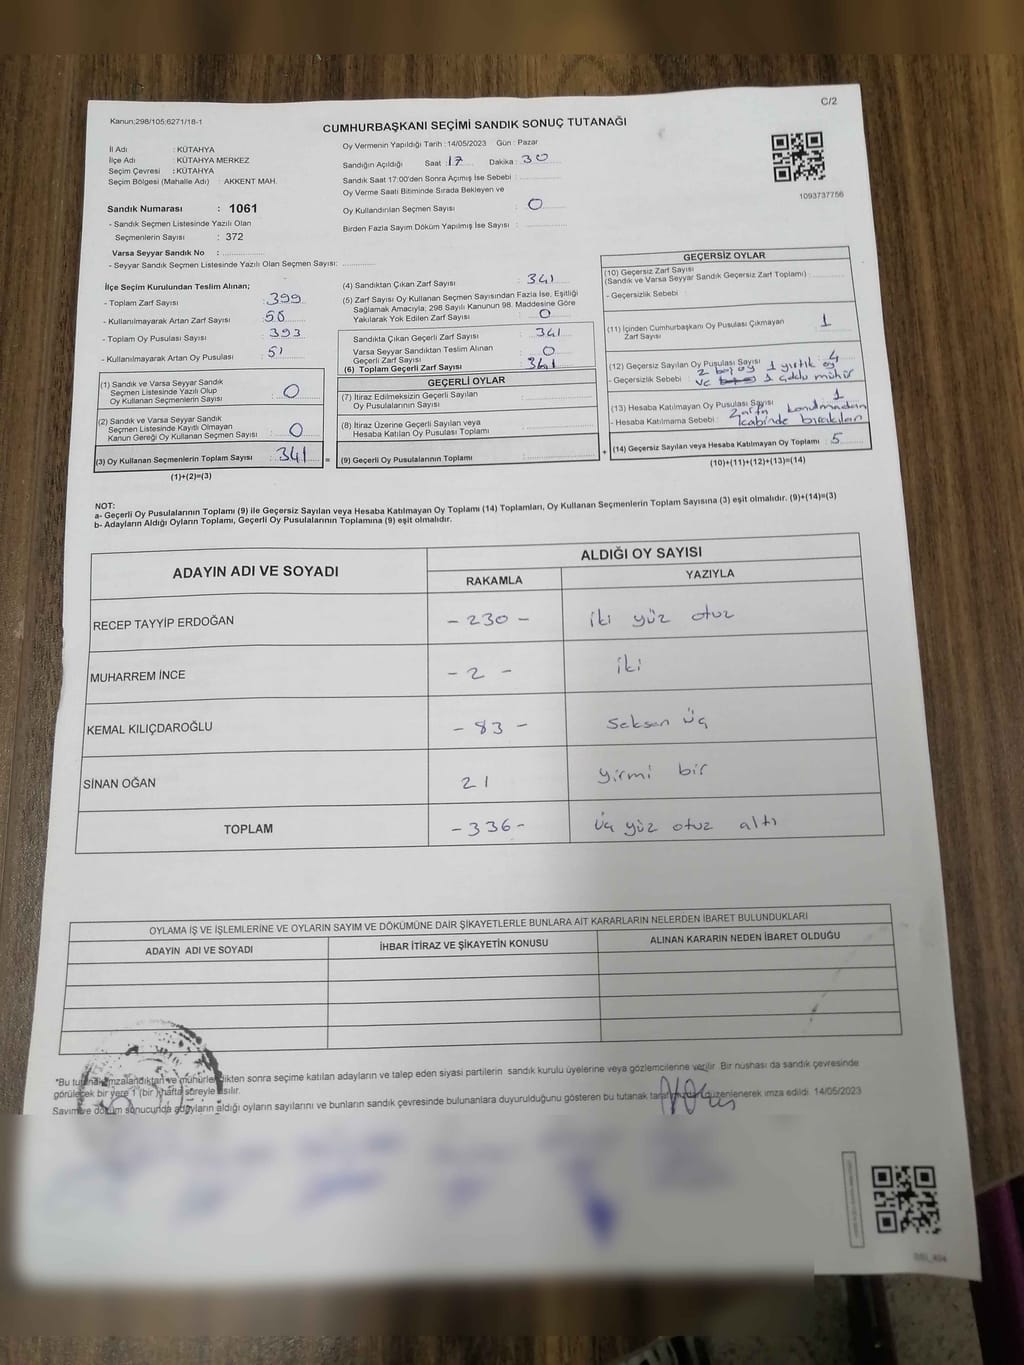 C/2
Kanun;298/105;6271/18-1
CUMHURBAŞKANI SEÇİMİ SANDIK SONUÇ TUTANAĞI
İl Adı : KÜTAHYA
İlçe Adı : KÜTAHYA MERKEZ
Seçim Çevresi : KÜTAHYA
Seçim Bölgesi (Mahalle Adı) : AKKENT MAH.
Sandık Numarası : 1061
- Sandık Seçmen Listesinde Yazılı Olan
Seçmenlerin Sayısı : 372
Varsa Seyyar Sandık No :
- Seyyar Sandık Seçmen Listesinde Yazılı Olan Seçmen Sayısı:
Oy Vermenin Yapıldığı Tarih :14/05/2023 Gün : Pazar
Sandığın Açıldığı Saat : 17 Dakika : 30
Sandık Saat 17:00'den Sonra Açımış İse Sebebi :
Oy Verme Saati Bitiminde Sırada Bekleyen ve
Oy Kullandırılan Seçmen Sayısı : 0
Birden Fazla Sayım Döküm Yapılmış İse Sayısı :
1093737756
İlçe Seçim Kurulundan Teslim Alınan;
- Toplam Zarf Sayısı : 399
- Kullanılmayarak Artan Zarf Sayısı : 58
- Toplam Oy Pusulası Sayısı : 393
- Kullanılmayarak Artan Oy Pusulası : 51
(1) Sandık ve Varsa Seyyar Sandık
Seçmen Listesinde Yazılı Olup
Oy Kullanan Seçmenlerin Sayısı : 0
(2) Sandık ve Varsa Seyyar Sandık
Seçmen Listesinde Kayıtlı Olmayan
Kanun Gereği Oy Kullanan Seçmen Sayısı : 0
(3) Oy Kullanan Seçmenlerin Toplam Sayısı : 341
(1)+(2)=(3)
(4) Sandıktan Çıkan Zarf Sayısı : 341
(5) Zarf Sayısı Oy Kullanan Seçmen Sayısından Fazla İse, Eşitliği
Sağlamak Amacıyla, 298 Sayılı Kanunun 98. Maddesine Göre
Yakılarak Yok Edilen Zarf Sayısı : 0
Sandıkta Çıkan Geçerli Zarf Sayısı : 341
Varsa Seyyar Sandıktan Teslim Alınan
Geçerli Zarf Sayısı : 0
(6) Toplam Geçerli Zarf Sayısı : 341
GEÇERLİ OYLAR
(7) İtiraz Edilmeksizin Geçerli Sayılan
Oy Pusulalarının Sayısı :
(8) İtiraz Üzerine Geçerli Sayılan veya
Hesaba Katılan Oy Pusulası Toplamı :
= (9) Geçerli Oy Pusulalarının Toplamı : +
GEÇERSİZ OYLAR
(10) Geçersiz Zarf Sayısı
(Sandık ve Varsa Seyyar Sandık Geçersiz Zarf Toplamı) :
- Geçersizlik Sebebi :
(11) İçinden Cumhurbaşkanı Oy Pusulası Çıkmayan
Zarf Sayısı : 1
(12) Geçersiz Sayılan Oy Pusulası Sayısı : 4
- Geçersizlik Sebebi : 2 boş oy 1 yırtık oy
ve 1 çoklu mühür
(13) Hesaba Katılmayan Oy Pusulası Sayısı : 1
- Hesaba Katılmama Sebebi : Zarfa konulmadan
kabinde bırakılan
(14) Geçersiz Sayılan veya Hesaba Katılmayan Oy Toplamı : 5
(10)+(11)+(12)+(13)=(14)
NOT:
a- Geçerli Oy Pusulalarının Toplamı (9) ile Geçersiz Sayılan veya Hesaba Katılmayan Oy Toplamı (14) Toplamları, Oy Kullanan Seçmenlerin Toplam Sayısına (3) eşit olmalıdır. (9)+(14)=(3)
b- Adayların Aldığı Oyların Toplamı, Geçerli Oy Pusulalarının Toplamına (9) eşit olmalıdır.
ADAYIN ADI VE SOYADI
ALDIĞI OY SAYISI
RAKAMLA YAZIYLA
RECEP TAYYİP ERDOĞAN - 230 - iki yüz otuz
MUHARREM İNCE - 2 - iki
KEMAL KILIÇDAROĞLU - 83 - Seksen üç
SİNAN OĞAN 21 yirmi bir
TOPLAM - 336 - üç yüz otuz altı
OYLAMA İŞ VE İŞLEMLERİNE VE OYLARIN SAYIM VE DÖKÜMÜNE DAİR ŞİKAYETLERLE BUNLARA AİT KARARLARIN NELERDEN İBARET BULUNDUKLARI
ADAYIN ADI VE SOYADI İHBAR İTİRAZ VE ŞİKAYETİN KONUSU ALINAN KARARIN NEDEN İBARET OLDUĞU
*Bu tutanak imzalandıktan ve mühürlendikten sonra seçime katılan adayların ve talep eden siyasi partilerin sandık kurulu üyelerine veya gözlemcilerine verilir. Bir nüshası da sandık çevresinde
görülecek bir yere 1 (bir) hafta süreyle asılır.
Sayım ve döküm sonucunda adayların aldığı oyların sayılarını ve bunların sandık çevresinde bulunanlara duyurulduğunu gösteren bu tutanak düzenlenerek imza edildi. 14/05/2023